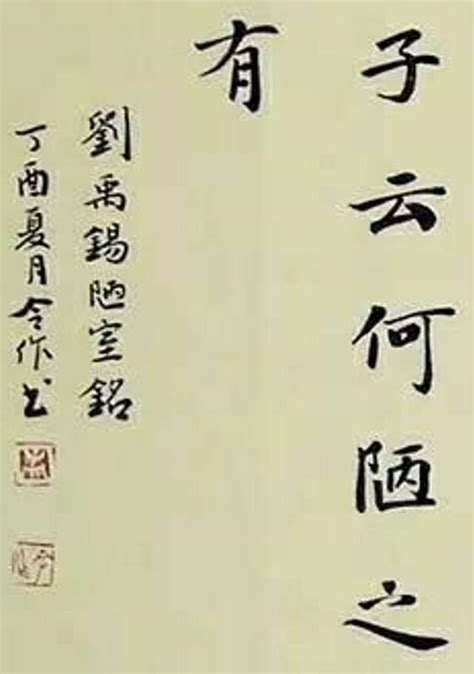 子云何陋之
有
劉禹錫陋室銘
丁酉夏月令作书